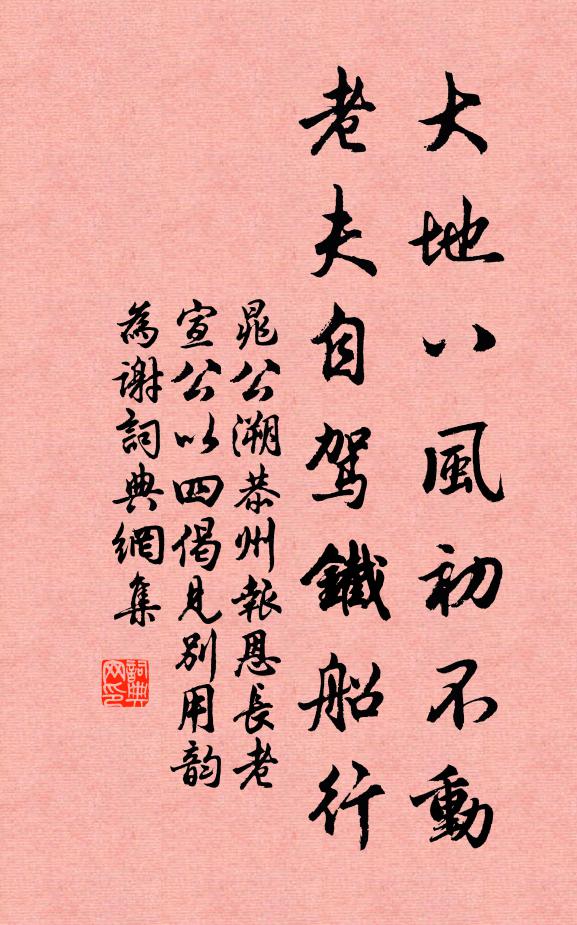 大地八風初不動
老夫自駕鐵船行
晁公溯恭州報恩長老
宣公以四偈見別用韵
為謝詞典網集
詞典
网印